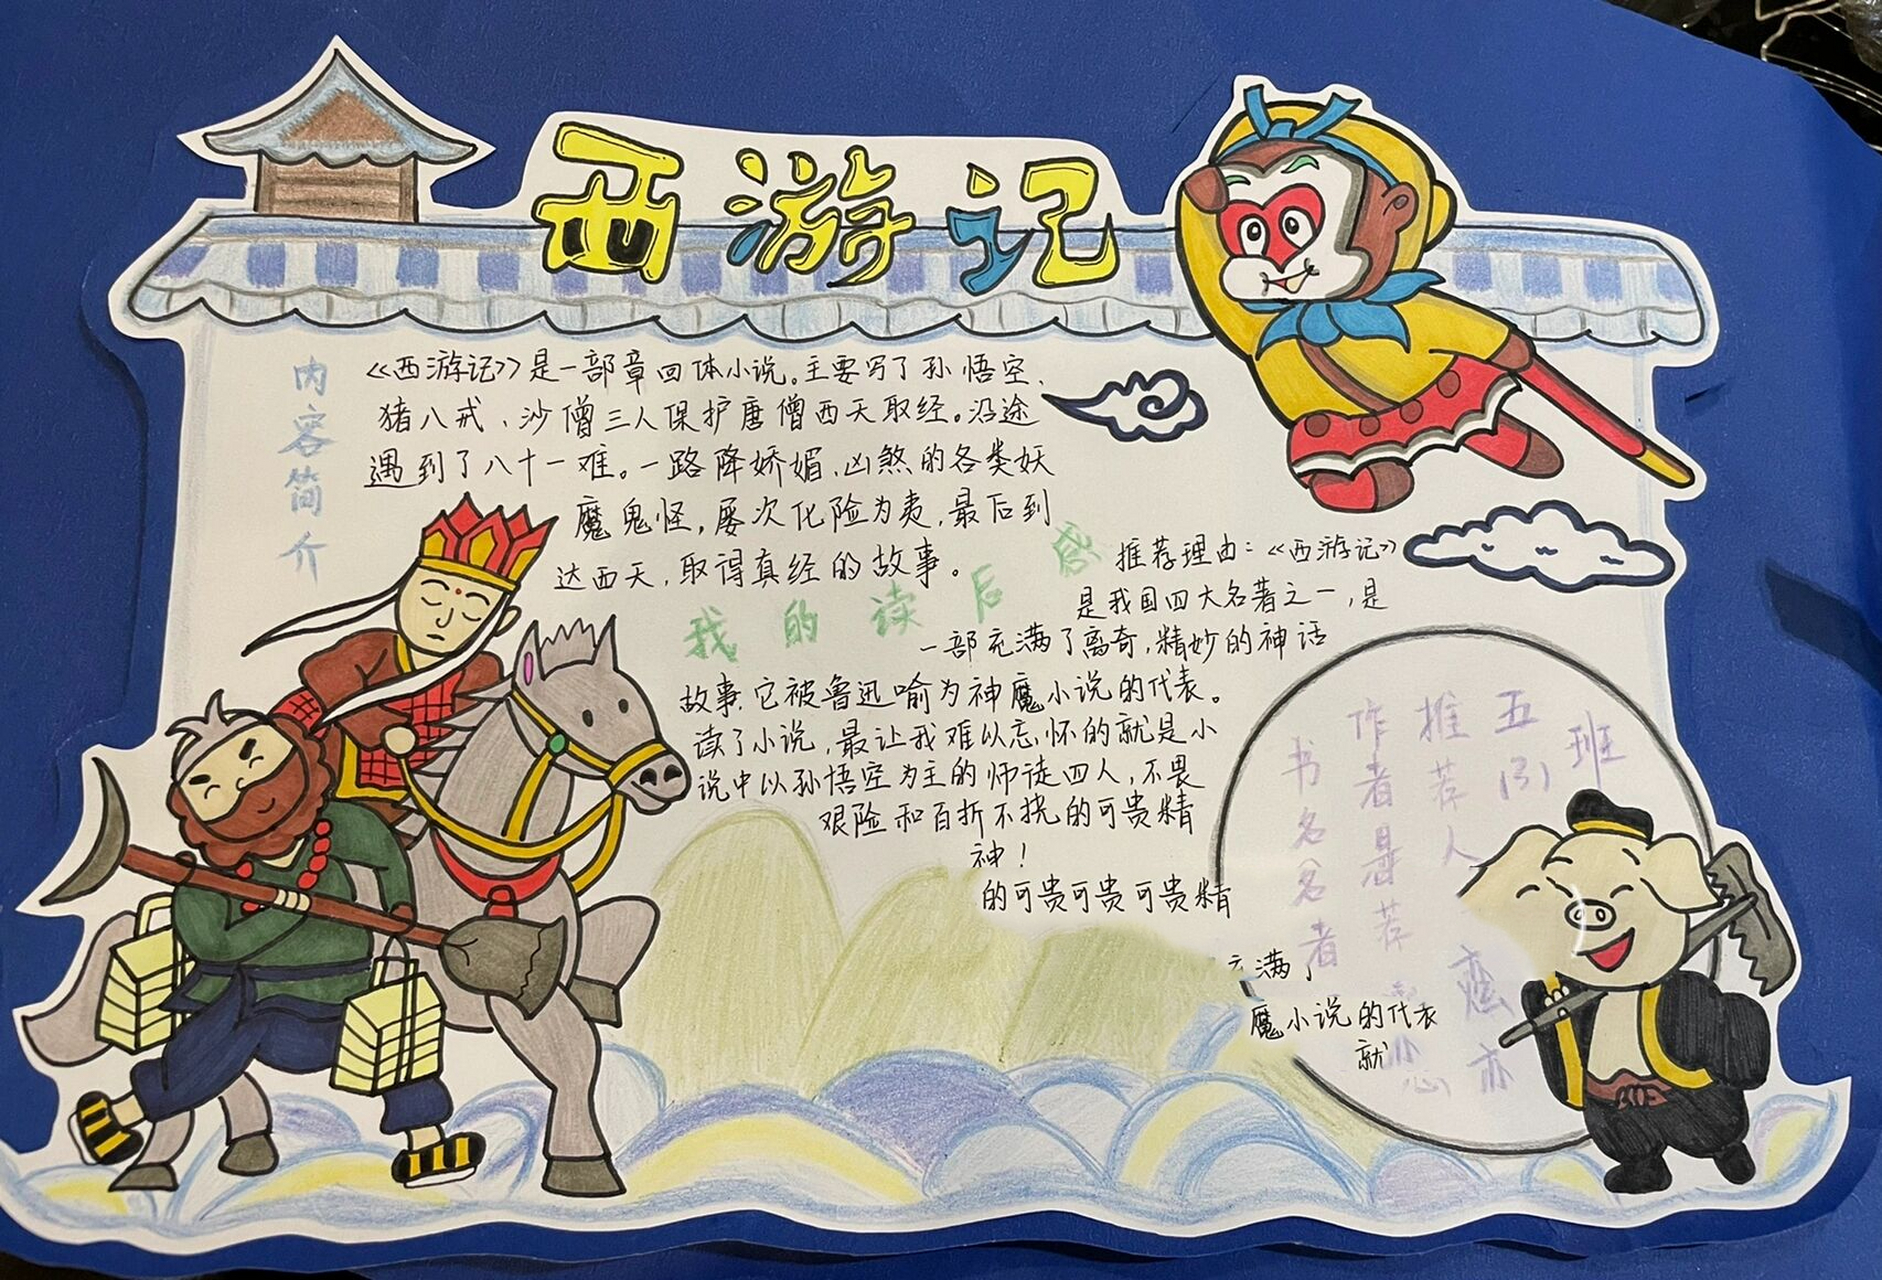 西游记
内容简介
《西游记》是一部章回体小说。主要写了孙悟空、
猪八戒、沙僧三人保护唐僧西天取经。沿途
遇到了八十一难。一路降娇媚、凶煞的各类妖
魔鬼怪,屡次化险为夷,最后到
达西天,取得真经的故事。
我的读后感
推荐理由:《西游记》
是我国四大名著之一,是
一部充满了离奇,精妙的神话
故事.它被鲁迅喻为神魔小说的代表。
读了小说,最让我难以忘怀的就是小
说中以孙悟空为主的师徒四人,不畏
艰险和百折不挠的可贵精
神!
的可贵可贵可贵精
满了
魔小说的代表
就
五(3)班
推荐人
作者是荐
书名名者